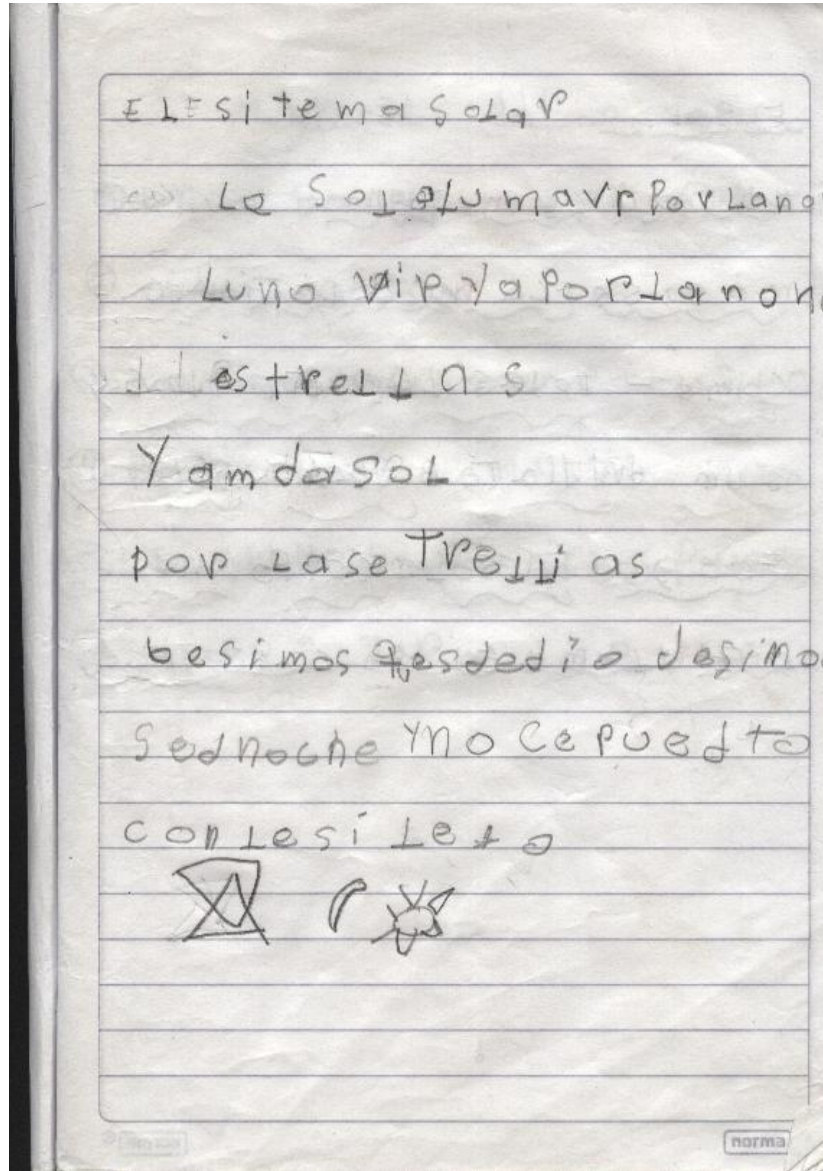 ELESitemaSolar
Le Sol alumavr Por Lano
Luno Vip ya Por La non
estrellas
YamdaSOL
por Lase Trellias
besimos quesdedio desimo
Sednoche Yno Ce Puedto
con Lesi Le
norma